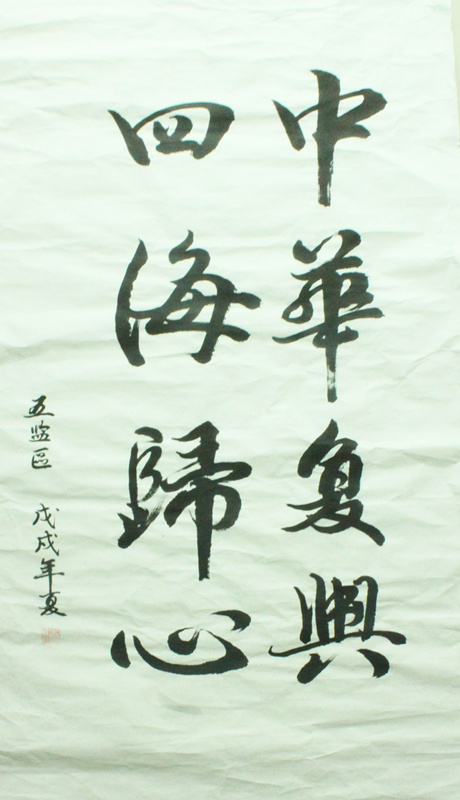 中華复興
四海歸心
五监区 戊戌年夏